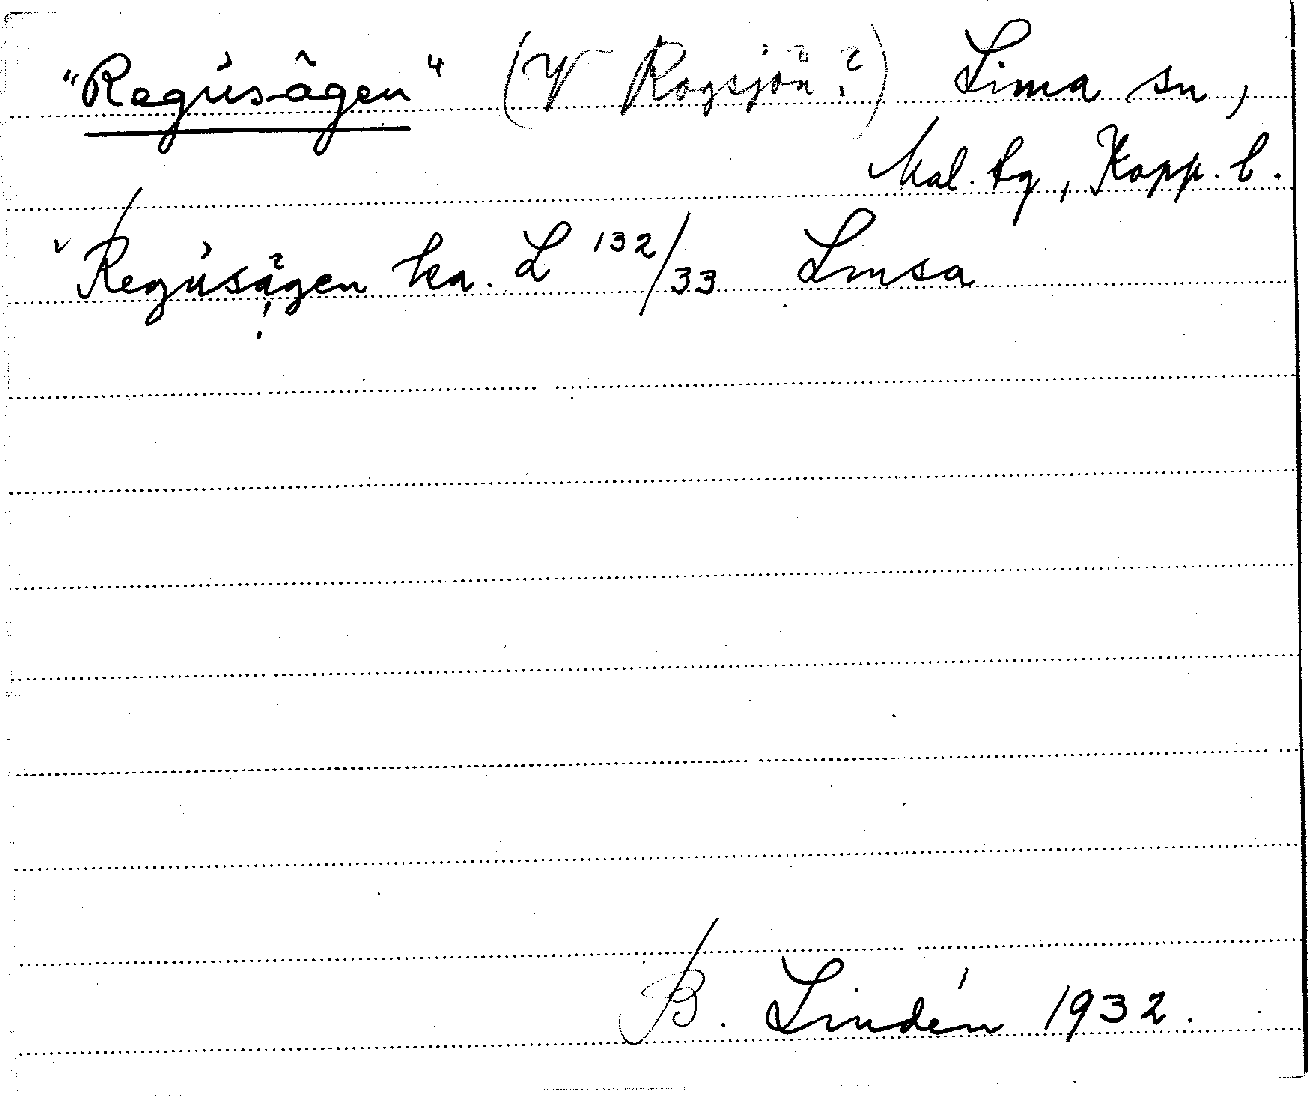 "Regúsâgen" (V Rogsjön?) Lima sn,
Mal. tg, Kopp. l.
Regúsågen ka. L 132/33 Lmsa
B. Lindén 1932.